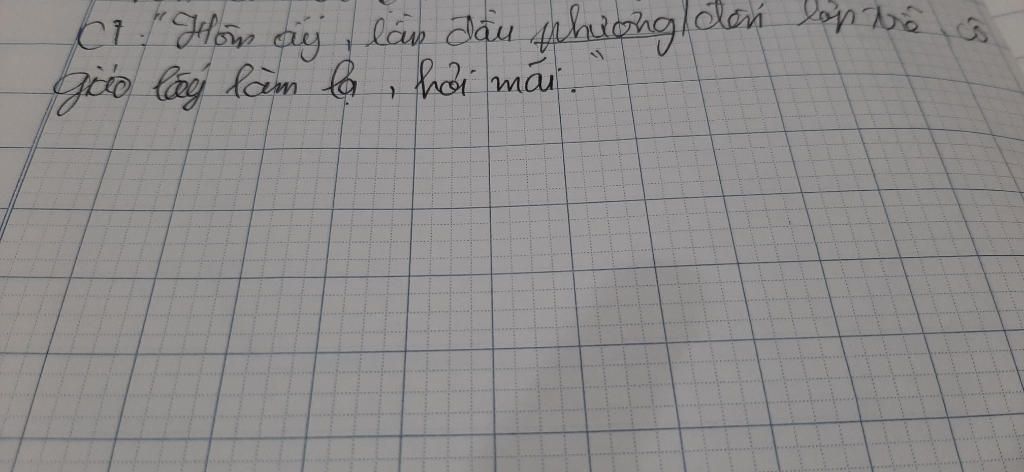 C1: "Hôm ấy, lần đầu Phương đến lớp trễ, cô
giáo lấy làm lạ, hỏi mãi."